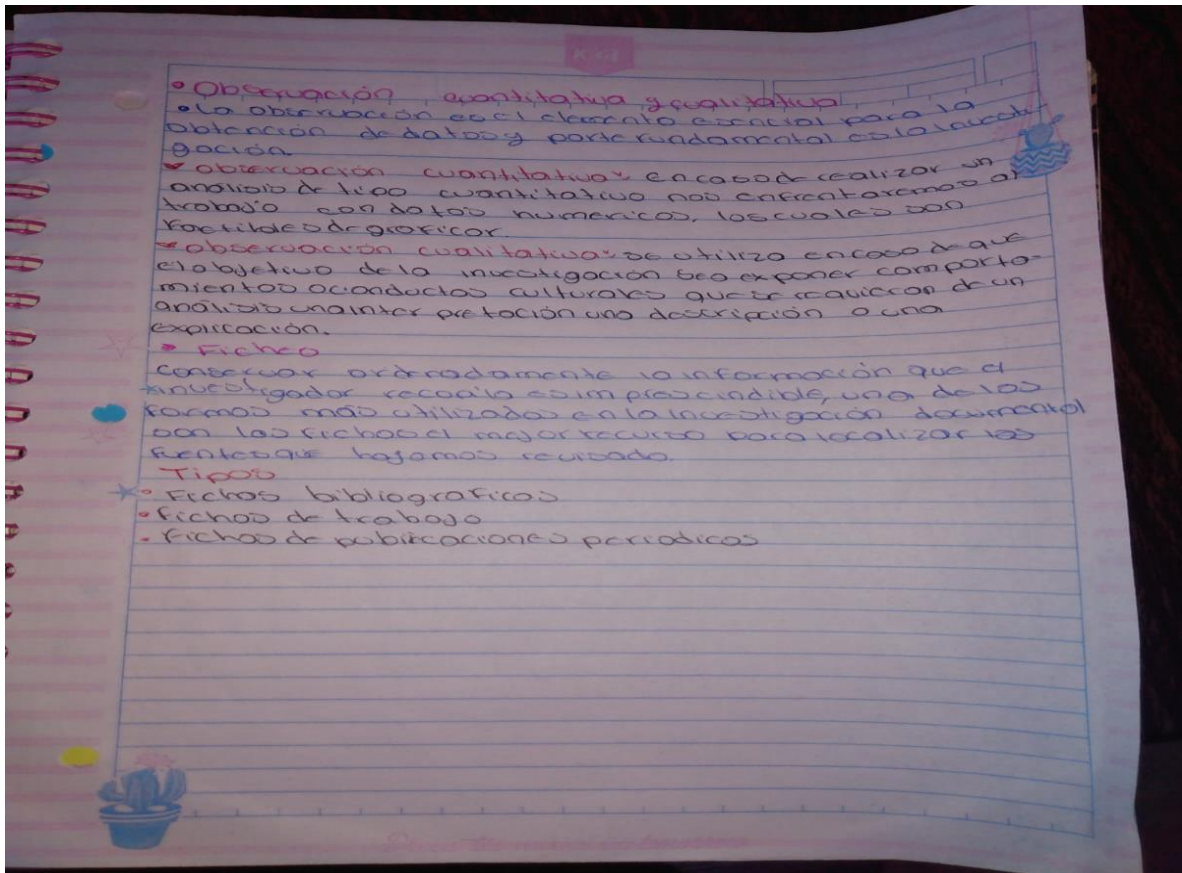 • Observación cuantitativa y cualitativa
• La observación es el elemento esencial para la
obtención de datos y parte fundamental es la investi-
gación.
observación cuantitativa: en caso de realizar un
análisis de tipo cuantitativo nos enfrentaremos al
trabajo con datos numericos, los cuales son
factibles de graficar.
observación cualitativa: se utiliza en caso de que
el objetivo de la investigación sea exponer comporta-
mientos o conductas culturales que se requieran de un
análisis una interpretación una descripción o una
explicación.
• Ficheo
conservar ordenadamente la información que el
investigador recopila es imprescindible, una de las
formas más utilizadas en la investigación documental
son las fichas el mejor recurso para localizar las
fuentes que hayamos revisado.
Tipos
• Fichas bibliograficas
• fichas de trabajo
• Fichas de publicaciones periodicas